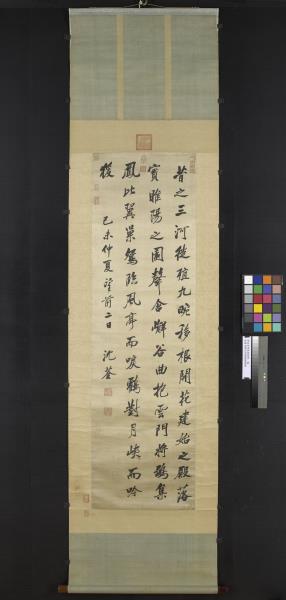 昔之三河徙植九畹移根開花建始之殿落
實睢陽之園聲含嶰谷曲抱雲門將鶵集
鳳比翼巢鴛臨風亭而唳鶴對月峽而吟
猨
己未仲夏望前二日 沈荃